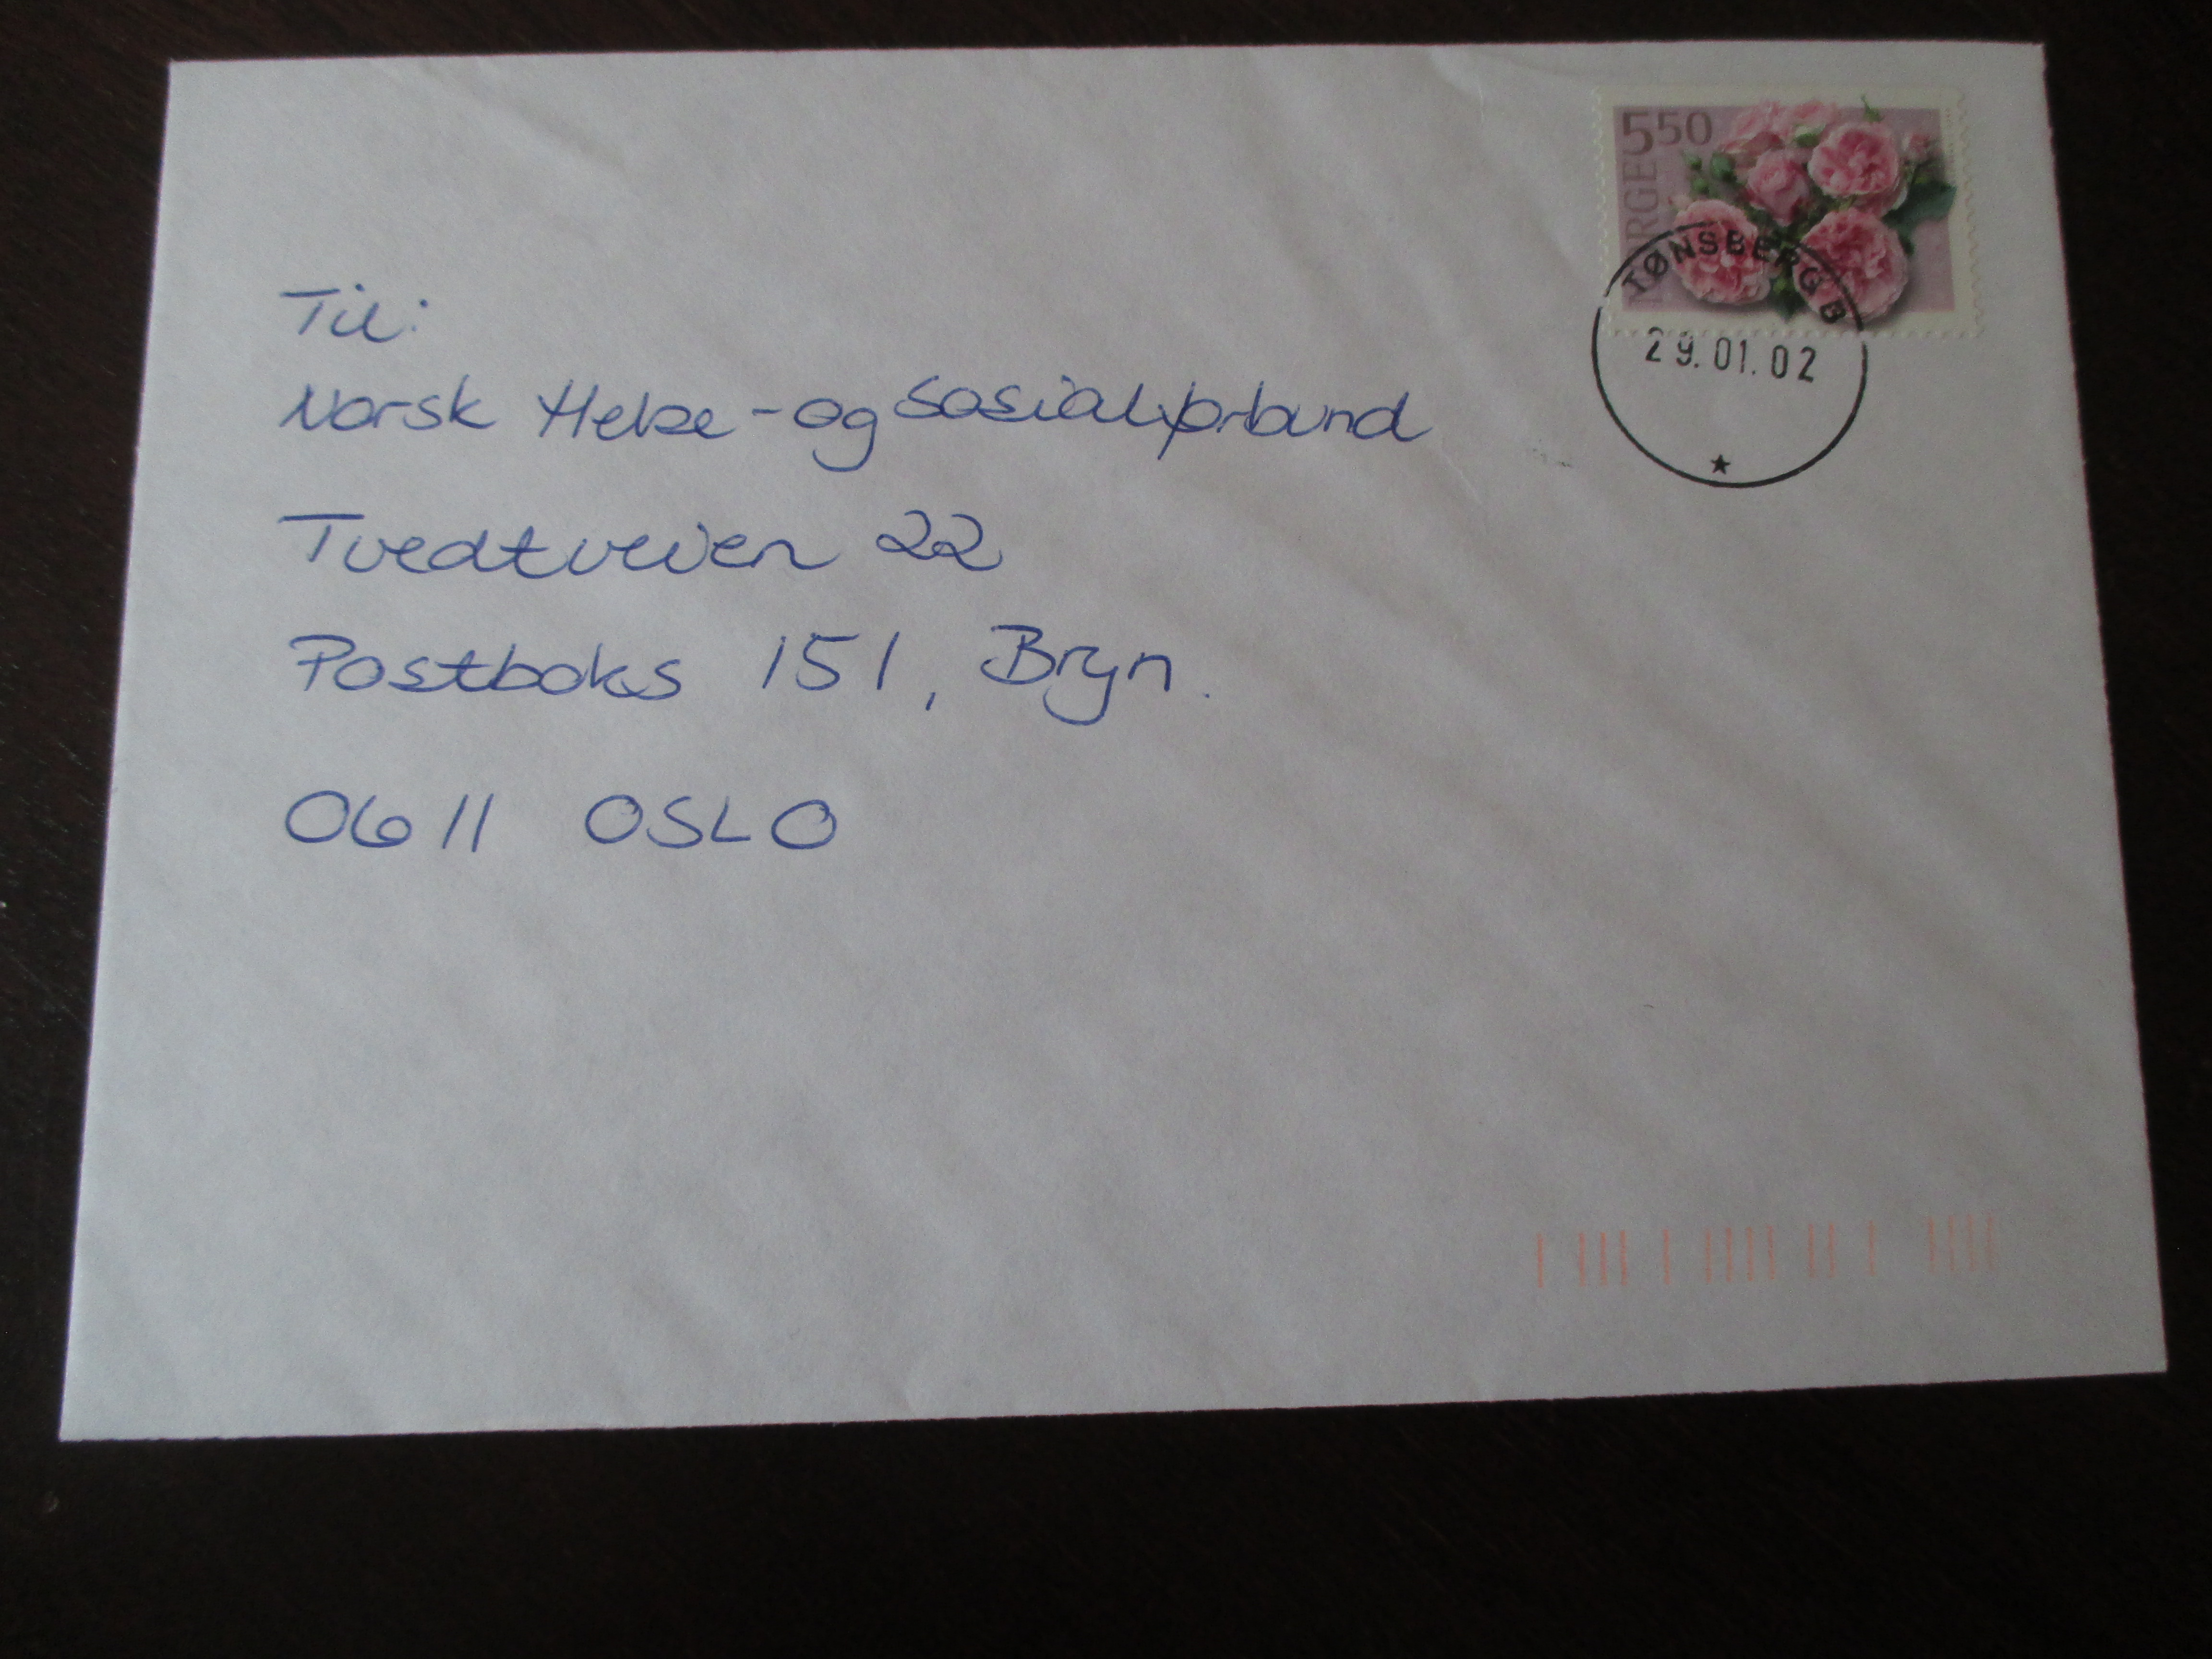 550
NORGE
TØNSBERG B
29.01.02
Til:
Norsk Helse-og sosialforbund
Tvedtveien 22
Postboks 151, Bryn.
0611 OSLO